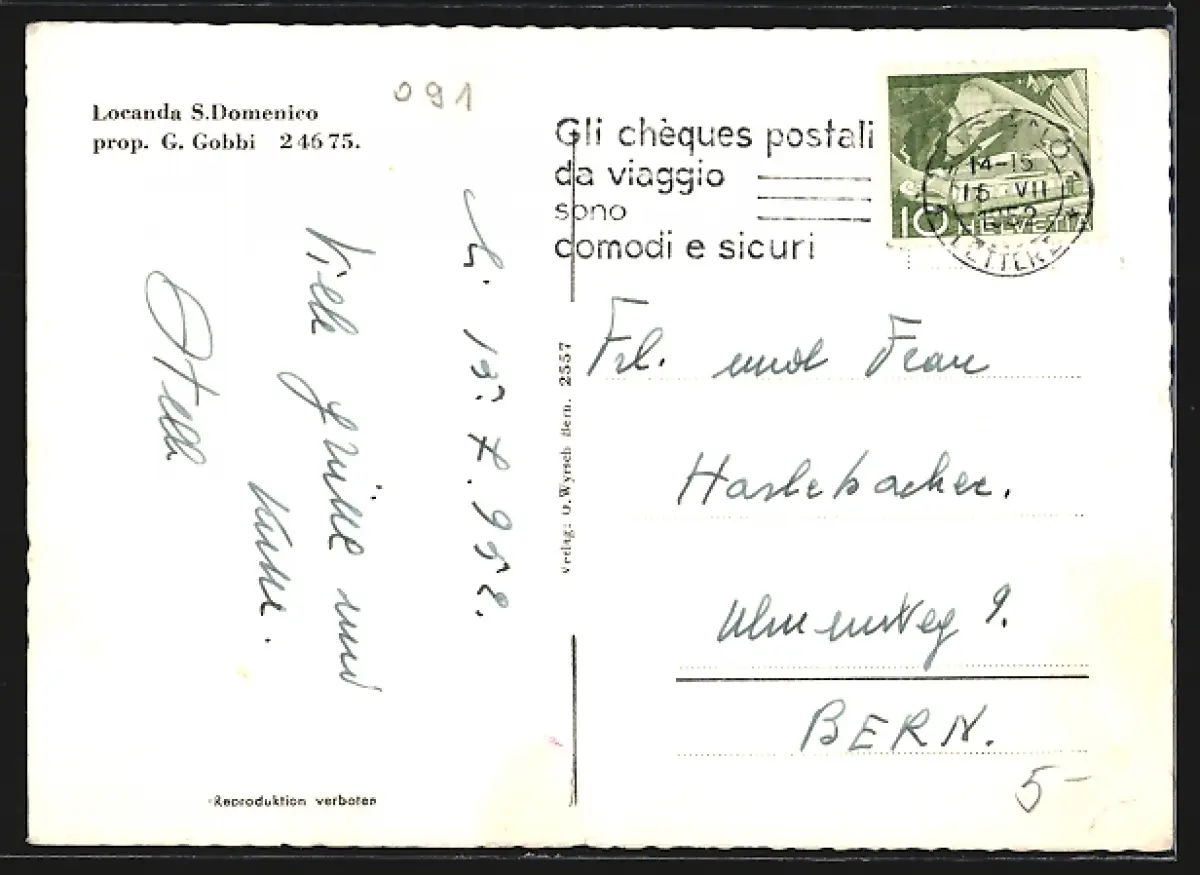 Locanda S.Domenico
prop. G. Gobbi 2 46 75.
091
Gli chèques postali
da viaggio
sono
comodi e sicuri
14-15
15 VII
1952
LETTERE
10 HELVETIA
L. 15. 7. 952.
Viele Grüsse und
Küsse.
Verlag: O. Wyrsch Bern. 2557
Frl. und Frau
Haslebacher.
Ulmenweg 9.
BERN.
5-
Reproduktion verboten